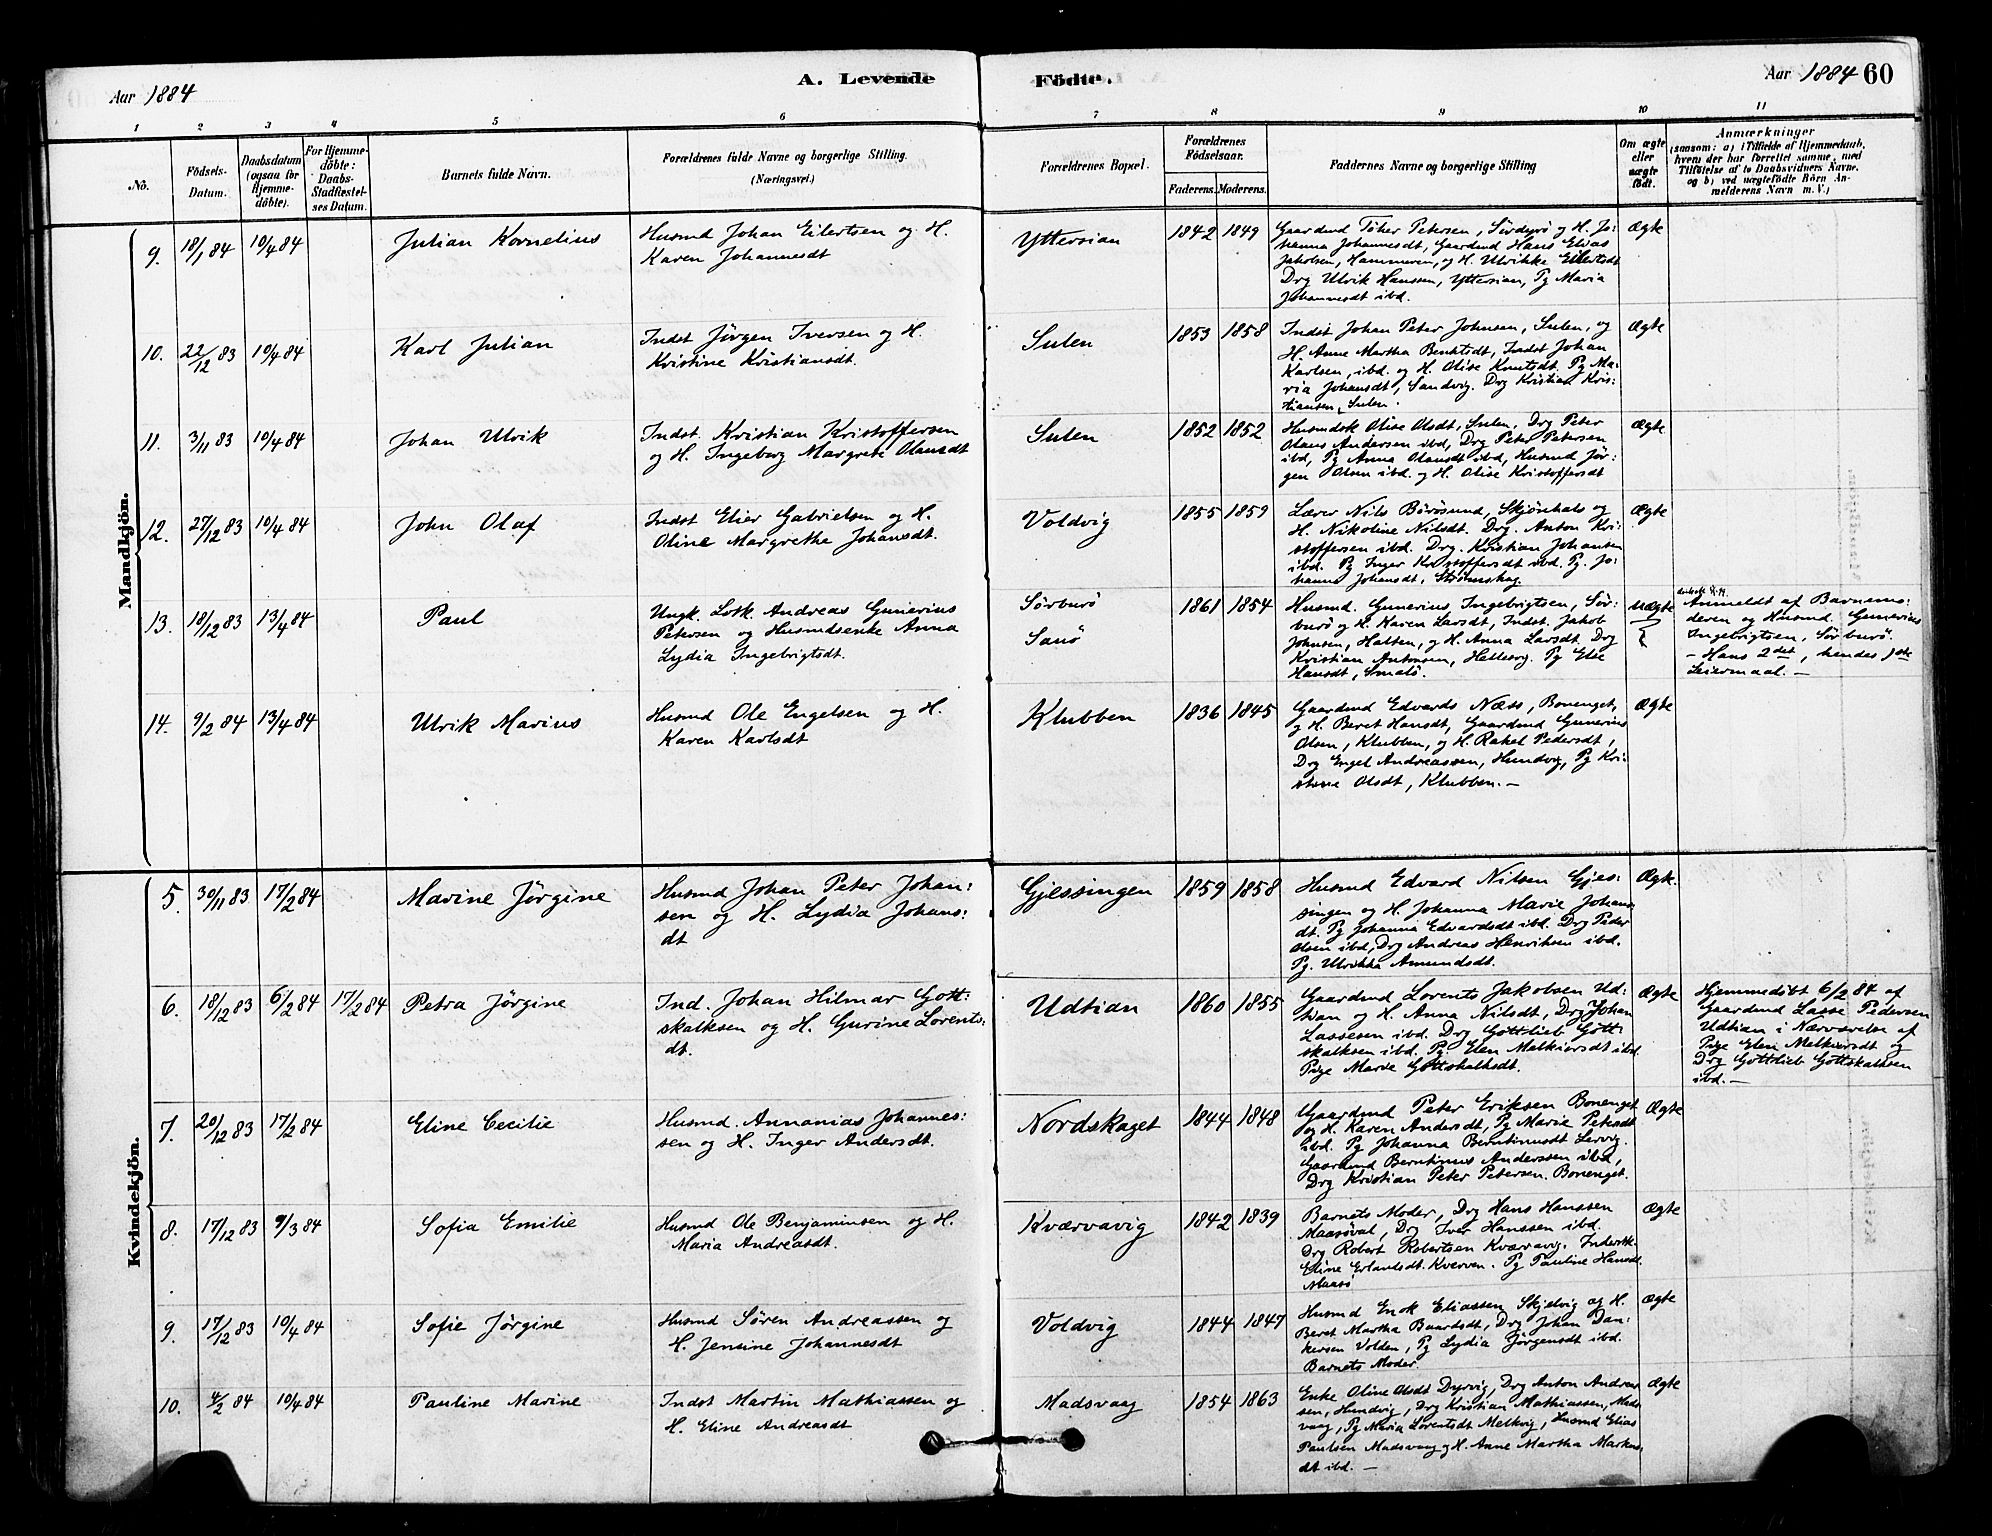 Aar 1884
A. Levende
Födte.
Aar 1884 60
1 2 3 4 5 6 7 8 9 10 11
No.
Födsels-
Datum.
Daabsdatum
(ogsaa for
Hjemme-
döbte).
For Hjemme-
döbte:
Daabs-
Stadfæstel-
ses Datum.
Barnets fulde Navn.
Forældrenes fulde Navne og borgerlige Stilling.
(Næringsvei.)
Forældrenes Bopæl.
Forældrenes
Födselsaar.
Faderens. Moderens.
Faddernes Navne og borgerlige Stilling
Om ægte
eller
uægte
födt.
Anmærkninger
(saasom: a) i Tilfælde af Hjemmedaab,
hvem der har forrettet samme, med
Tilföielse af to Daabsvidners Navne,
og b) ved uægtefödte Börn An-
melderens Navn m. V.)
Mandkjön.
9. 18/1 84 10/4 84 Julian Kornelius
Husmd Johan Eilertsen og H.
Karen Johannesdt
Yttersian 1842 1849
Gaardmd Petersen, og H. Jo-
hanna Johannesdt, Gaardmd Hans Elias
Jakobsen, Hammeren, og H. Ulrikke Eilertsdt
Drg Ulrik Hanssen, Yttersian, Pg Maria
Johannesdt ibd.
Ægte
10. 22/12 83 10/4 84 Karl Julian
Indst Jörgen Iversen og H.
Kristine Kristiansdt.
Sulen 1853 1858
Indst Johan Peter Johnsen, Sulen, og
H. Anne Martha Benktsdt, Indst Johan
Karlsen, ibd. og H. Olise Knutsdt. Pg Ma-
ria Johansdt, Sandvig. Drg Kristian Kris-
tiansen, Sulen.
Ægte
11. 3/11 83 10/4 84 Johan Ulrik
Indst. Kristian Kristoffersen
og H. Ingeborg Margrete Olausdt
Sulen 1852 1852
Husmdsk Olise Olsdt, Sulen, Drg Peter
Olaus Andersen ibd, Drg Peter Petersen
ibd, Pg Anna Olausdt ibd, Husmd Jör-
gen Olsen ibd. og H. Olise Kristoffersdt
Ægte
12. 27/12 83 10/4 84 John Olaf
Indst Elier Gabrielsen og H.
Oline Margrethe Johansdt.
Voldvig 1855 1859
Lærer Nils Börösund, Skjönhals og
H. Nikoline Nilsdt. Drg. Anton Kri-
stoffersen ibd. Drg. Kristian Johansen
ibd. Pg Inger Kristoffersdt ibd. Pg. Jo-
hanna Johansdt, Strömskag.
Ægte
13. 18/12 83 13/4 84 Paul
Ungk. Losk. Andreas Gunerius
Petersen og Husmdsenke Anna
Lydia Ingebrigtsdt.
Sörburö
Sanö
1861 1854
Husmd. Gunerius Ingebrigtsen, Sör-
burö og H. Karen Larsdt, Indst. Jakob
Johnsen, Halten, og H. Anna Larsdt. Drg
Kristian Antonsen, Hellesvg. Pg Elie
Hansdt, Smalö.
Uægte
Anmeldt af Barnemo-
deren og Husmd. Gunerius
Ingebrigtsen, Sörburö.
- Hans 2det, hendes 1ste
Leiermaal. -
14. 9/2 84 13/4 84 Ulrik Marius
Husmd Ole Engelsen og H.
Karen Karlsdt
Klubben 1836 1845
Gaardmd Edvards Næss, Bonenget,
og H. Beret Hansdt, Gaardmd Gunerius
Olsen, Klubben, og H. Rakel Pedersdt,
Drg Engel Andreassen, Hundvig, Pg Kri-
stine Olsdt, Klubben. -
Ægte
Kvindekjön.
5. 30/11 83 17/2 84 Marine Jörgine
Husmd Johan Peter Johan-
sen og H. Lydia Johans-
dt
Gjessingen 1859 1858
Husmd Edvard Nilsen Gjes-
singen og H. Johanna Marie Johans-
dt. Pg Johanna Edvardsdt ibd. Drg Peder
Olsen ibd, Drg Andreas Henriksen ibd.
Pg. Ulrikka Amundsdt.
Ægte
6. 18/12 83 6/2 84 17/2 84 Petra Jörgine
Ind. Johan Hilmar Gott-
skalksen og H. Gurine Lorents-
dt.
Udtian 1860 1855
Gaardmd Lorents Jakobsen Ud-
tian og H. Anna Nilsdt, Drg Johan
Lassesen ibd. Drg Gottlieb Gott-
skalksen ibd. Pg. Elen Melkiorsdt ibd
Pige Marie Gottskalksdt.
Ægte
Hjemmedöbt 6/2 84 af
Gaardmd Lasse Pedersen
Udtian i Nærværelse af
Pige Elen Melkiorsdt og
Drg Gottlieb Gottskalksen
ibd. -
7. 20/12 83 17/2 84 Eline Cecilie
Husmd. Annanias Johannes-
sen og H. Inger Andersdt.
Nordskaget 1844 1848
Gaardmd Peter Eriksen Bonenget
og H. Karen Andersdt, Pg Marie Petersdt
ibd. Pg Johanna Berntinusdt Lervig.
Gaardmd Berntinus Anderssen ibd,
Drg Kristian Peter Petersen. Bonenget.
Ægte
8. 17/12 83 9/3 84 Sofia Emilie
Husmd Ole Benjaminsen og H.
Maria Andreasdt.
Kværvavig 1842 1839
Barnets Moder, Drg Hans Hanssen
Maasöval, Drg Iver Hanssen ibd.
Drg Robert Robertsen Kværvavig. Inderstk.
Eline Erlandsdt. Kverven. Pg Pauline Hansdt.
Maasö
Ægte
9. 17/12 83 10/4 84 Sofie Jörgine
Husmd Sören Andreassen og
H. Jensine Johannesdt
Voldvig 1844 1847
Husmd Enok Eliassen Skjelvig og H.
Beret Martha Baardsdt, Drg Johan Dan-
kersen Volden, Pg Lydia Jörgensdt ibd.
Barnets Moder.
Ægte
10. 4/2 84 10/4 84 Pauline Marine
Indst Martin Mathiassen og
H. Eline Andreasdt
Madsvaag 1854 1863
Enke Oline Olsdt Dyrvig, Drg Anton Andreas-
sen, Hundvig, Drg Kristian Mathiassen, Mads-
vaag, Pg Maria Lorentsdt Melkvig, Husmd Elias
Paulsen Madsvaag og H. Anne Martha Markus-
dt ibd. -
Ægte